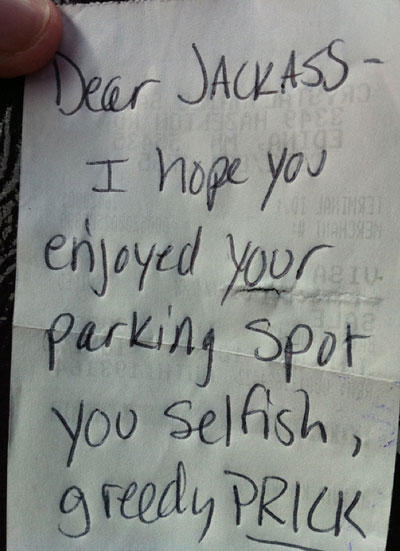 Dear JACKASS-
I hope you
enjoyed your
parking spot
you selfish,
greedy PRICK